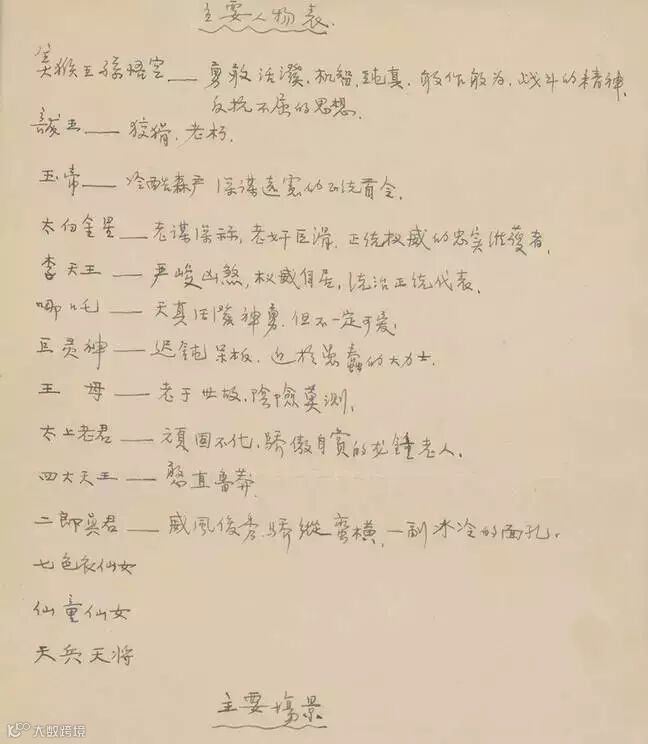 主要人物表.
美猴王孫悟空——勇敢活潑、机智、純真、敢作敢为、战斗的精神、
反抗不屈的思想.
龍王——狡猾、老朽.
玉帝——冷酷森严 深謀遠慮的正统首令.
太白金星——老謀深祘,老奸巨滑、正统权威的忠实維護者.
李天王——严峻凶煞,权威自居,统治正统代表.
哪吒——天真活潑神勇、但不一定可爱.
巨灵神——迟鈍呆板、近於愚蠢的大力士.
王母——老于世故,陰險莫測.
太上老君——頑固不化、驕傲自賞的龙鍾老人.
四大天王——憨直魯莽.
二郎真君——威風俊秀、驕縱蛮横、一副冰冷的面孔.
七色衣仙女
仙童仙女
天兵天将
主要場景
大数跨境